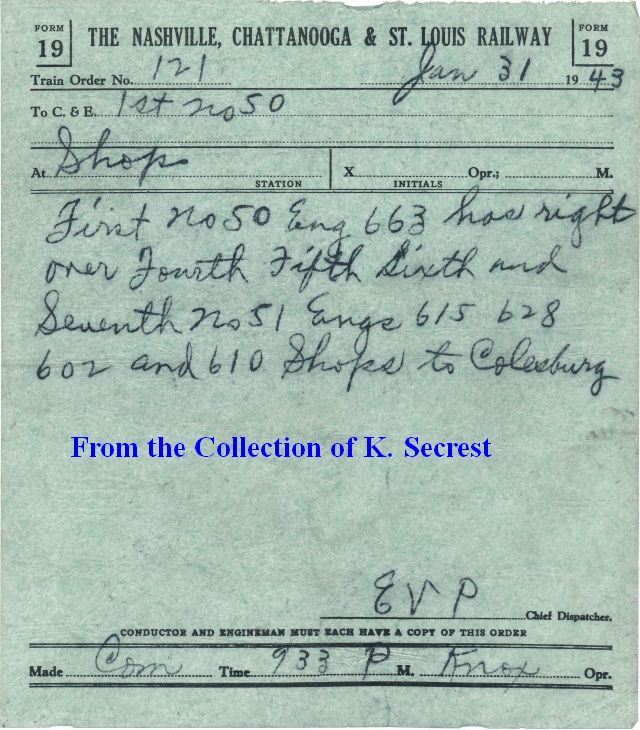 FORM 19
THE NASHVILLE, CHATTANOOGA & ST. LOUIS RAILWAY
FORM 19
Train Order No. 121 Jan 31 1943
To C. & E. 1st no 50
At Shops X Opr.; M.
STATION INITIALS
First No 50 Eng 663 has right
over Fourth Fifth Sixth and
Seventh No 51 Engs 615 628
602 and 610 Shops to Colesburg
From the Collection of K. Secrest
E V P Chief Dispatcher.
CONDUCTOR AND ENGINEMAN MUST EACH HAVE A COPY OF THIS ORDER
Made Com Time 933 P M. Knox Opr.